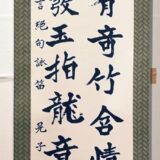 奇竹含情
發玉指龍
言絕句詠笛 晃子